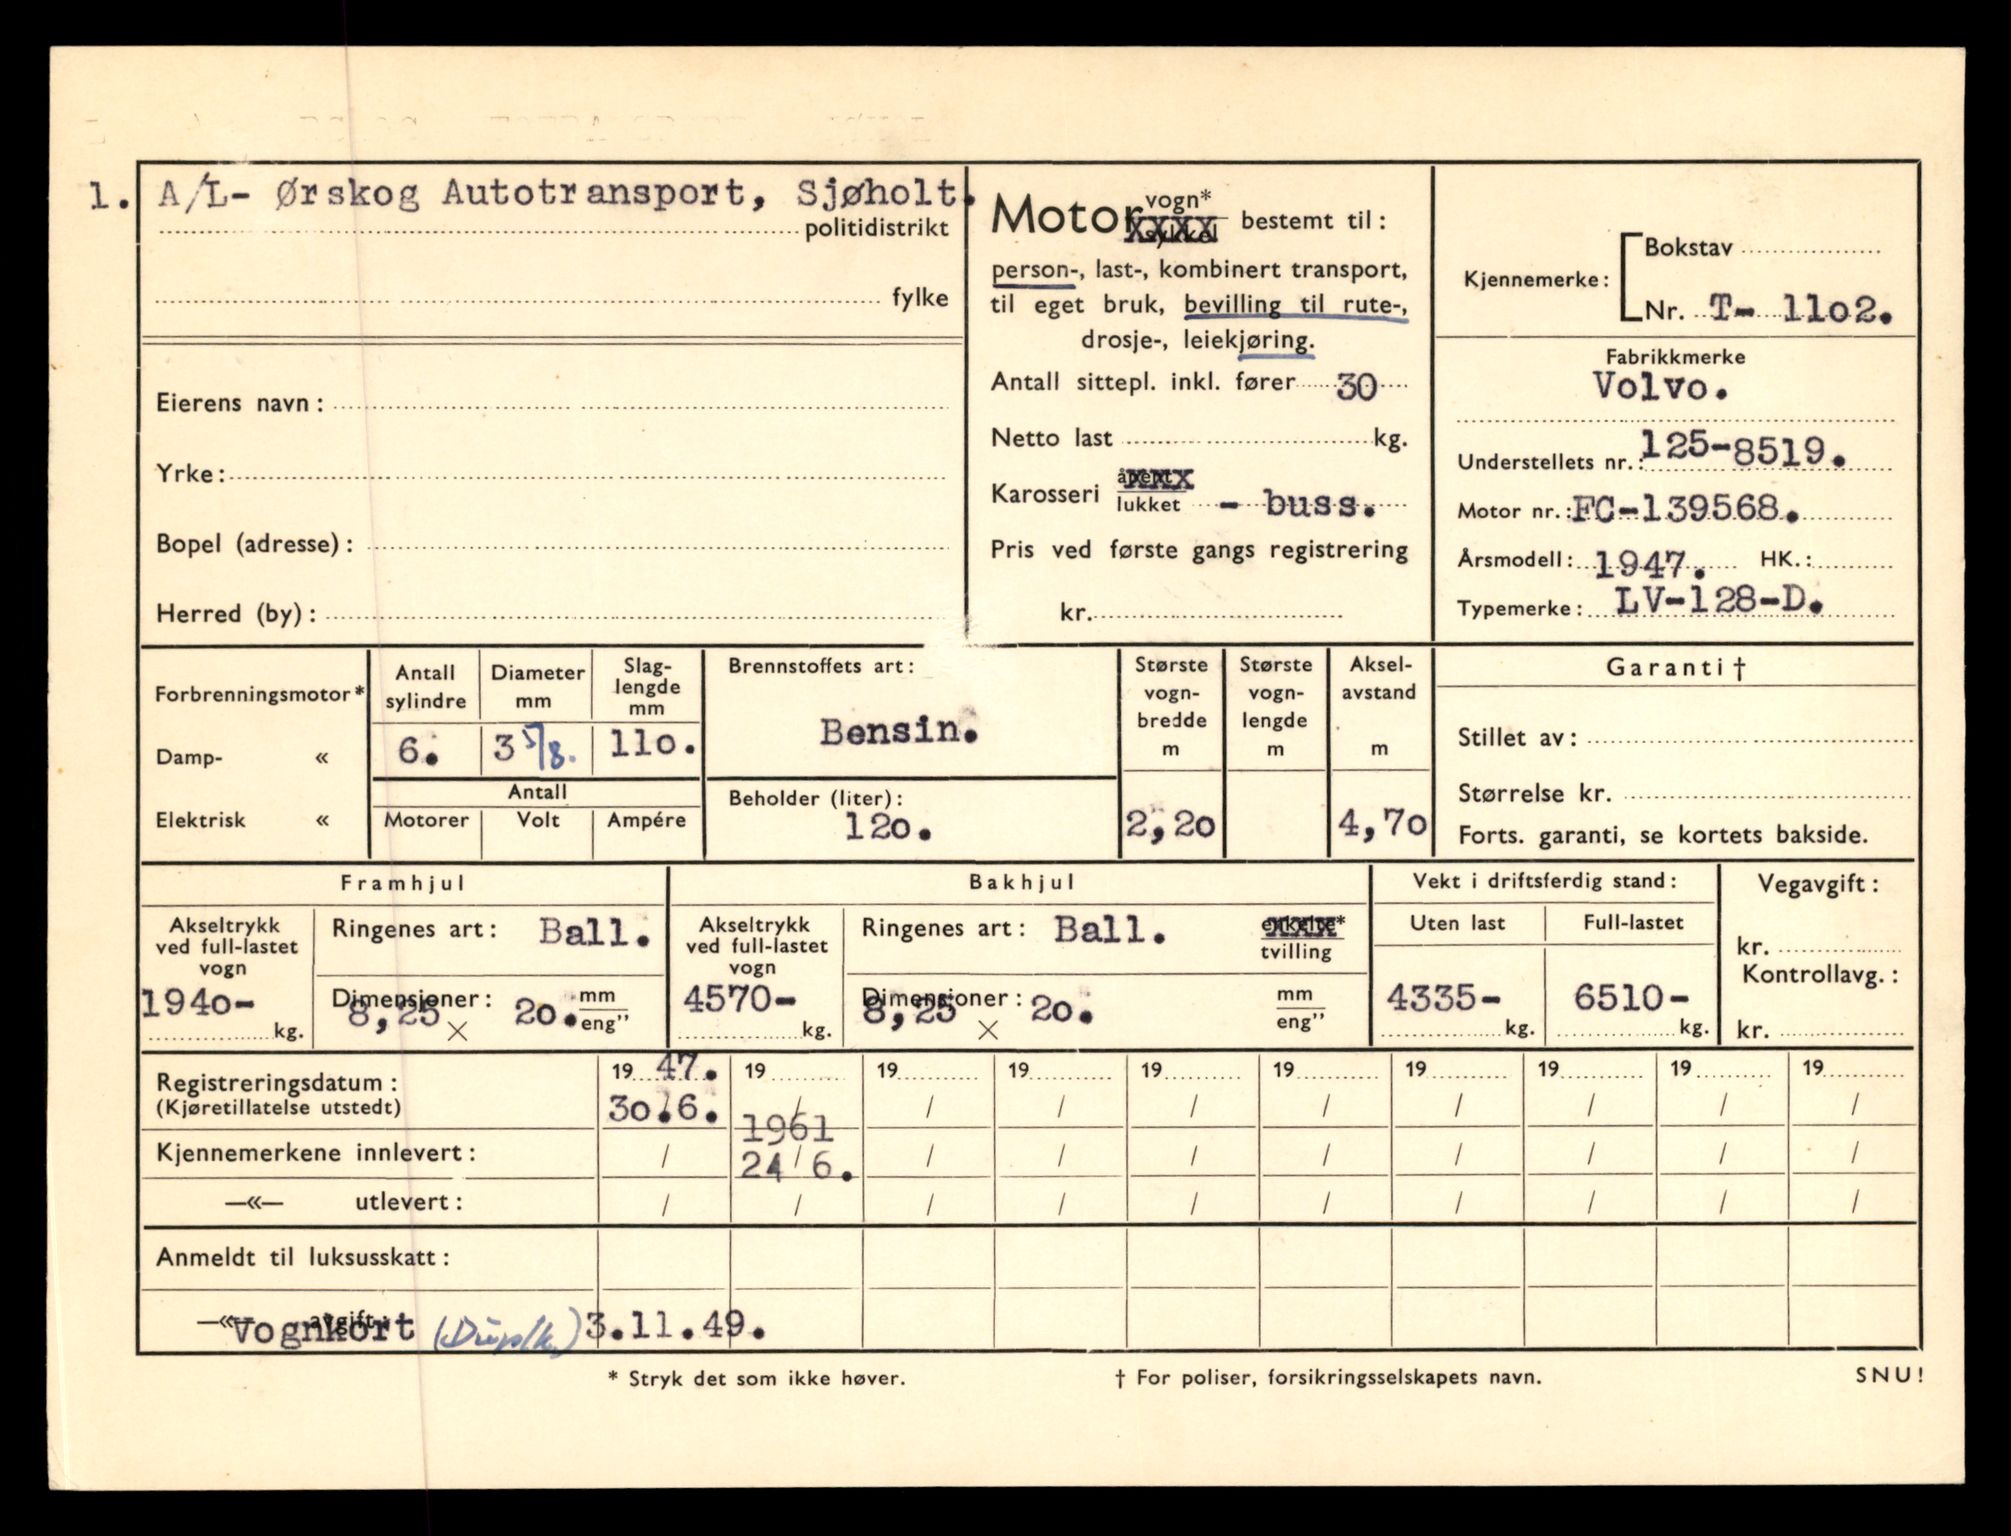 1. A/L- Ørskog Autotransport, Sjøholt.
politidistrikt
fylke
Eierens navn:
Yrke:
Bopel (adresse):
Herred (by):
Motor vogn*
sykkel bestemt til:
person-, last-, kombinert transport,
til eget bruk, bevilling til rute-,
drosje-, leiekjøring.
Antall sittepl. inkl. fører 30
Netto last kg.
Karosseri åpent
lukket - buss.
Pris ved første gangs registrering
kr.
Kjennemerke:
Bokstav
Nr. T- 11o2.
Fabrikkmerke
Volvo.
Understellets nr.: 125-8519.
Motor nr.: FC-139568.
Årsmodell: 1947. HK.:
Typemerke: LV-128-D.
Forbrenningsmotor*
Damp- «
Elektrisk «
Antall sylindre
Diameter mm
Slag-lengde mm
6. 3 5/8. 11o.
Antall
Motorer Volt Ampére
Brennstoffets art:
Bensin.
Beholder (liter):
12o.
Største vogn-bredde m
2,2o
Største vogn-lengde m
Aksel-avstand m
4,7o
Garanti †
Stillet av:
Størrelse kr.
Forts. garanti, se kortets bakside.
Framhjul
Akseltrykk
ved full-lastet
vogn
194o-
kg.
Ringenes art: Ball.
Dimensjoner: mm
8,25 × 2o. eng”
Bakhjul
Akseltrykk
ved full-lastet
vogn
4570-
kg.
Ringenes art: Ball. enkelte*
tvilling
Dimensjoner: mm
8,25 × 2o. eng”
Vekt i driftsferdig stand:
Uten last Full-lastet
4335- 6510-
kg. kg.
Vegavgift:
kr.
Kontrollavg.:
kr.
Registreringsdatum: 19 47. 19 19 19 19 19 19 19 19 19
(Kjøretillatelse utstedt) 3o.6. / / / / / / / / /
1961
Kjennemerkene innlevert: / 24/6. / / / / / / / /
—«— utlevert: / / / / / / / / / /
Anmeldt til luksusskatt:
—«— avgift:
Vognkort (Duplk.) 3.11.49.
* Stryk det som ikke høver.
† For poliser, forsikringsselskapets navn.
SNU!